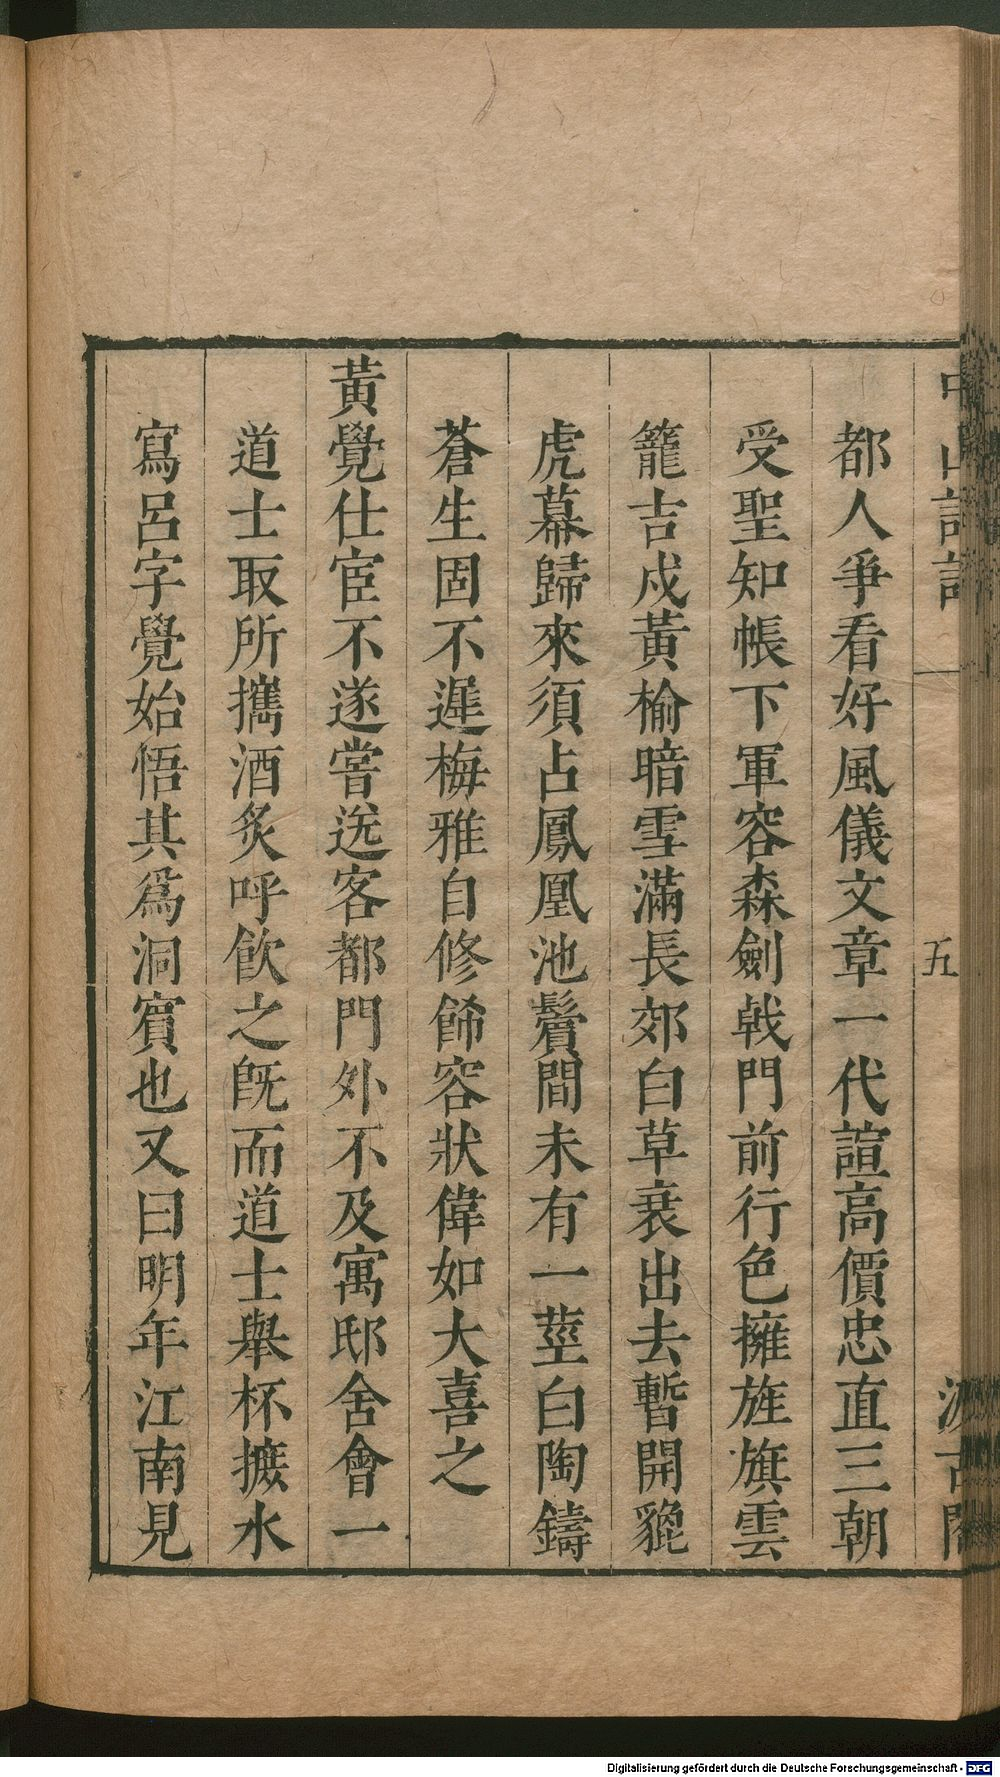 中山詩話
五
汲古閣
都人爭看好風儀文章一代諠高價忠直三朝
受聖知帳下軍容森劍戟門前行色擁旌旗雲
籠吉戍黃榆暗雪滿長郊白草衰出去暫開貔
虎幕歸來須占鳳凰池鬢間未有一莖白陶鑄
蒼生固不遲梅雅自修飾容狀偉如大喜之
黃覺仕宦不遂嘗送客都門外不及寓邸舍會一
道士取所攜酒炙呼飲之旣而道士舉杯摭水
寫呂字覺始悟其爲洞賓也又曰明年江南見
Digitalisierung gefördert durch die Deutsche Forschungsgemeinschaft - DFG